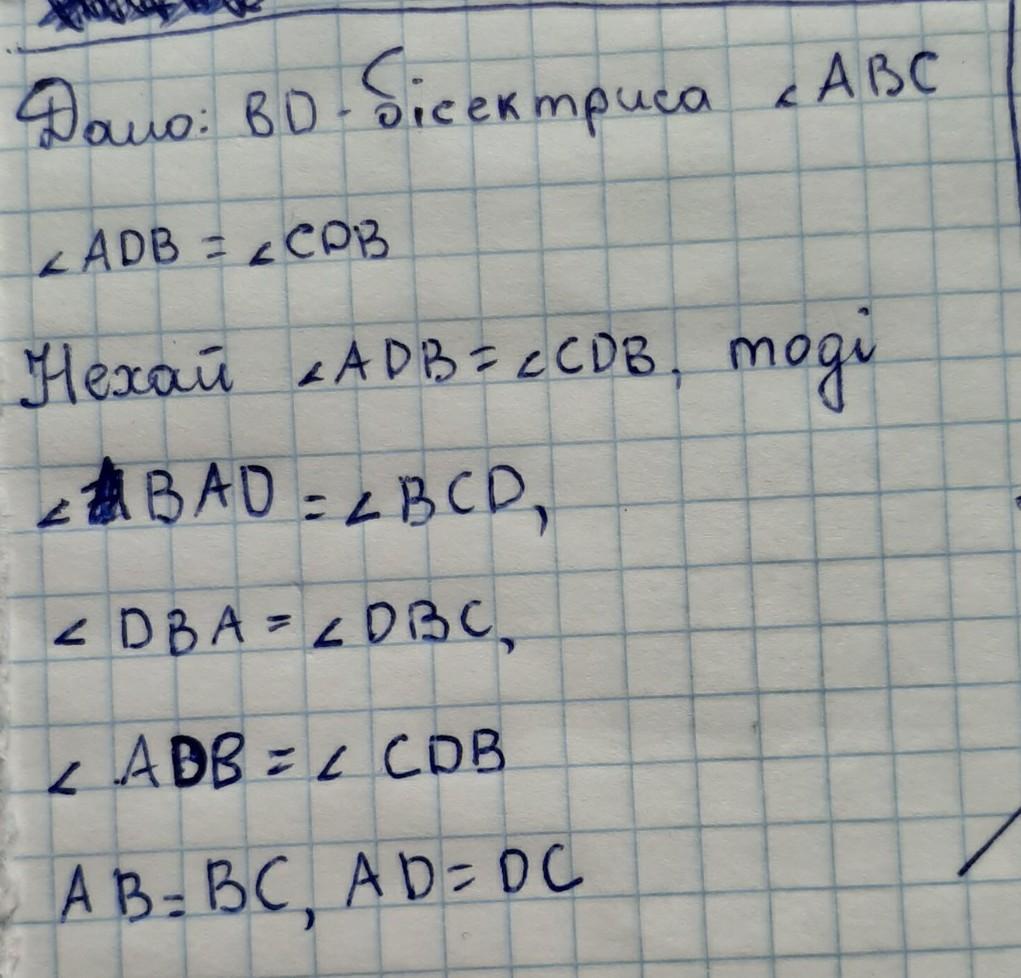 Дано: BD - бісектриса ∠ABC
∠ADB = ∠CDB
Нехай ∠ADB = ∠CDB, тоді
∠BAD = ∠BCD,
∠DBA = ∠DBC,
∠ADB = ∠CDB
AB = BC, AD = DC